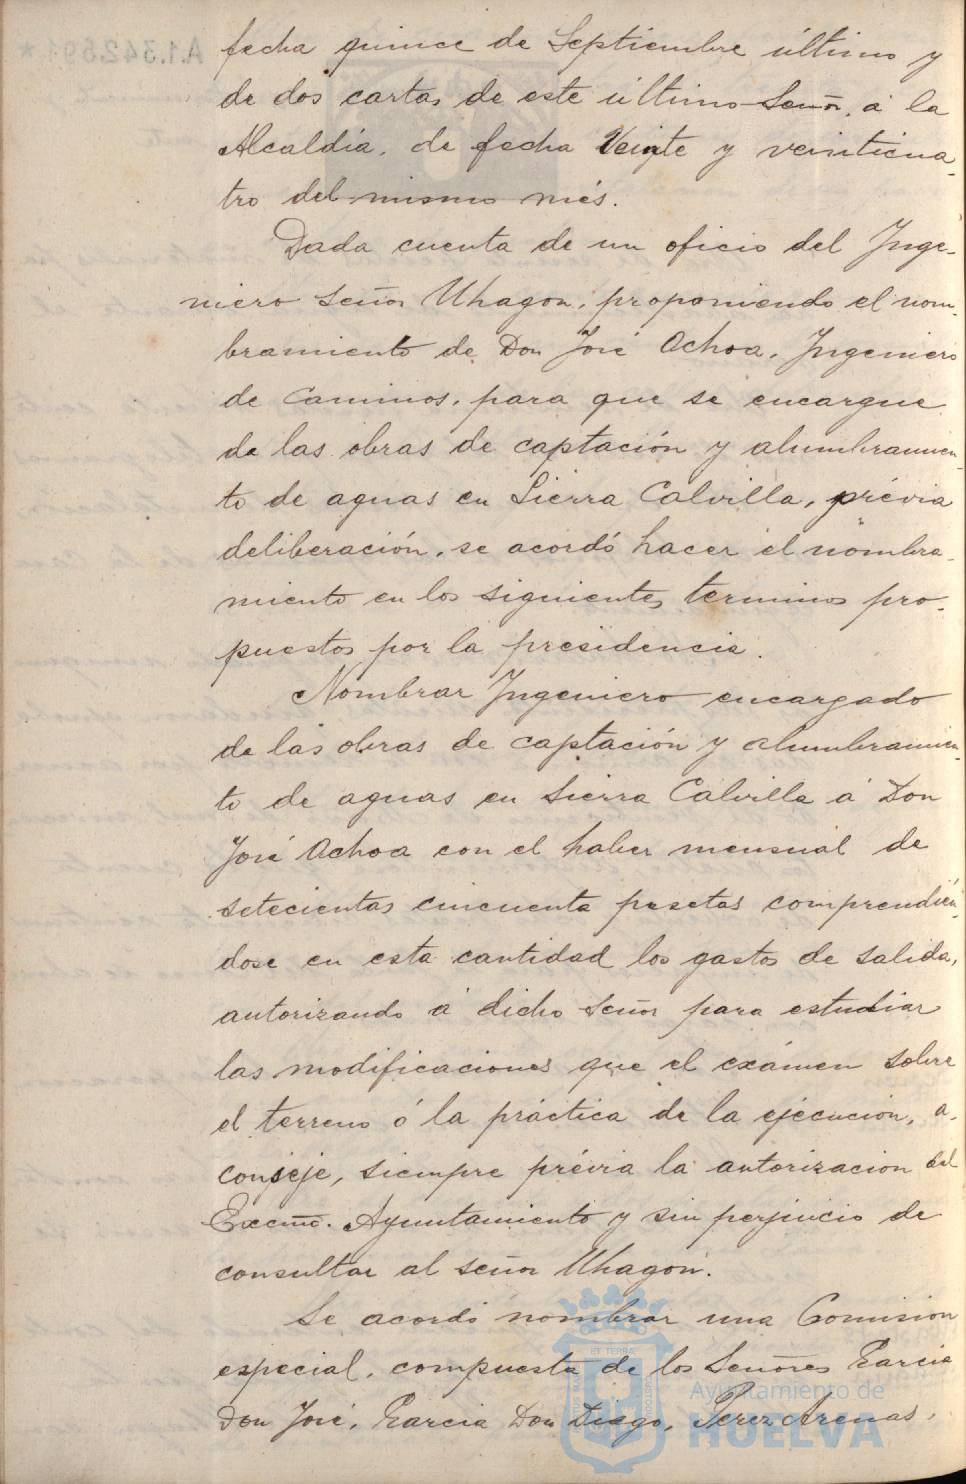 fecha quince de Septiembre último y
de dos cartas de este último Señor, á la
Alcaldía, de fecha Veinte y veinticua-
tro del mismo més.
Dada cuenta de un oficio del Inge-
niero Señor Uhagon, proponiendo el nom-
bramiento de Don José Ochoa, Ingeniero
de Caminos, para que se encargue
de las obras de captación y alumbramien-
to de aguas en Sierra Calvilla, prévia
deliberación, se acordó hacer el nombra-
miento en los siguientes terminos pro-
puestos por la presidencia.
Nombrar Ingeniero encargado
de las obras de captación y alumbramien-
to de aguas en Sierra Calvilla á Don
José Ochoa con el haber mensual de
setecientas cincuenta pesetas comprendién-
dose en esta cantidad los gastos de salida,
autorizando á dicho Señor para estudiar
las modificaciones que el exámen sobre
el terreno ó la práctica de la ejecución, a-
conseje, siempre prévia la autorizacion del
Excmo. Ayuntamiento y sin perjuicio de
consultar al señor Uhagón.
Se acordó nombrar una Comision
especial, compuesta de los Señores Garcia
Don José, Garcia Don Diego, Perez Arenas,
Ayuntamiento de
HUELVA